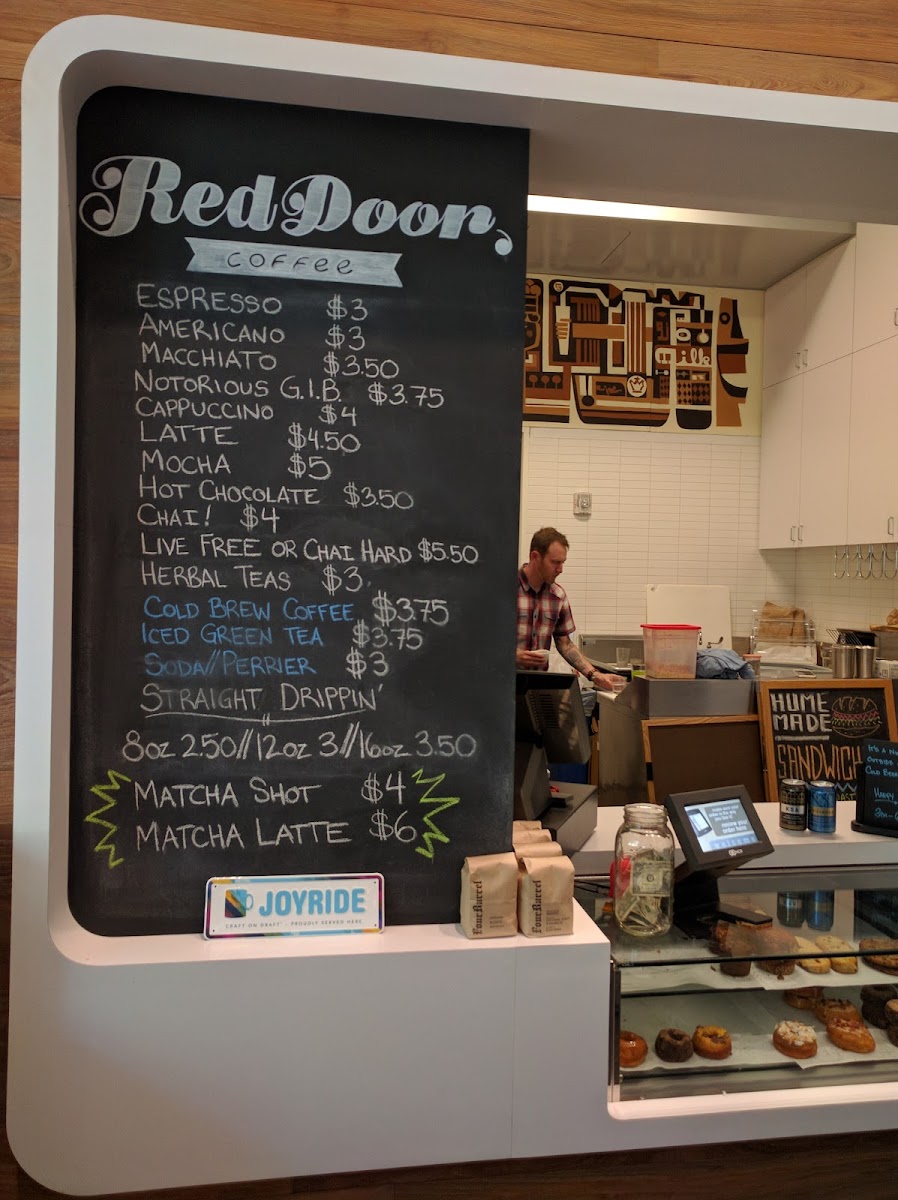 Red Door
COFFEE
ESPRESSO $3
AMERICANO $3
MACCHIATO $3.50
NOTORIOUS G.I.B. $3.75
CAPPUCCINO $4
LATTE $4.50
MOCHA $5
HOT CHOCOLATE $3.50
CHAI! $4
LIVE FREE OR CHAI HARD $5.50
HERBAL TEAS $3
COLD BREW COFFEE $3.75
ICED GREEN TEA $3.75
SODA//PERRIER $3
STRAIGHT DRIPPIN'
8oz 2.50//12oz 3//16oz 3.50
MATCHA SHOT $4
MATCHA LATTE $6
JOYRIDE
CRAFT ON DRAFT · PROUDLY SERVED HERE
FourBarrel
FourBarrel
milk
HOME
MADE
SANDWICH
COLD BREW
HAPPY